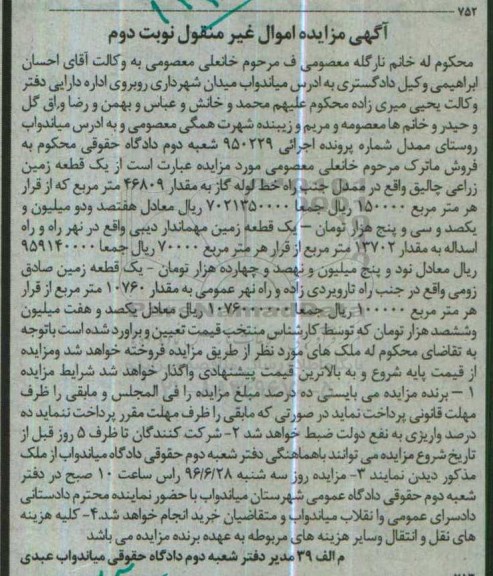 ۷۵۲
آگهی مزایده اموال غیر منقول نوبت دوم
محکوم له خانم نارگله معصومی ف مرحوم خانعلی معصومی به وکالت آقای احسان
ابراهیمی وکیل دادگستری به ادرس میاندواب میدان شهرداری روبروی اداره دارایی دفتر
وکالت یحیی میری زاده محکوم علیهم محمد و خانش و عباس و بهمن و رضا وراق گل
و حیدر و خانم ها معصومه و مریم و زیبنده شهرت همگی معصومی و به ادرس میاندواب
روستای ممدل شماره پرونده اجرائی ۹۵۰۲۲۹ شعبه دوم دادگاه حقوقی محکوم به
فروش ماترک مرحوم خانعلی معصومی مورد مزایده عبارت است از یک قطعه زمین
زراعی چالیق واقع در ممدل جنب راه خط لوله گاز به مقدار ۴۶۸۰۹ متر مربع که از قرار
هر متر مربع ۱۵۰۰۰۰ ریال جمعا ۷۰۲۱۳۵۰۰۰۰ ریال معادل هفتصد ودو میلیون و
یکصد و سی و پنج هزار تومان – یک قطعه زمین مهماندار دیبی واقع در نهر راه و راه
اسداله به مقدار ۱۳۷۰۲ متر مربع از قرار هر متر مربع ۷۰۰۰۰ ریال جمعا ۹۵۹۱۴۰۰۰۰
ریال معادل نود و پنج میلیون و نهصد و چهارده هزار تومان - یک قطعه زمین صادق
زومی واقع در جنب راه تارویردی زاده و راه نهر عمومی به مقدار ۱۰۷۶۰ متر مربع از قرار
هر متر مربع ۱۰۰۰۰۰ ریال جمعا ۱۰۷۶۰۰۰۰۰۰ ریال معادل یکصد و هفت میلیون
وششصد هزار تومان که توسط کارشناس منتخب قیمت تعیین و براورد شده است باتوجه
به تقاضای محکوم له ملک های مورد نظر از طریق مزایده فروخته خواهد شد ومزایده
از قیمت پایه شروع و به بالاترین قیمت پیشنهادی واگذار خواهد شد شرایط مزایده
۱ – برنده مزایده می بایستی ده درصد مبلغ مزایده را فی المجلس و مابقی را ظرف
مهلت قانونی پرداخت نماید در صورتی که مابقی را ظرف مهلت مقرر پرداخت ننماید ده
درصد واریزی به نفع دولت ضبط خواهد شد ۲- شرکت کنندگان تا ظرف ۵ روز قبل از
تاریخ شروع مزایده می توانند باهماهنگی دفتر شعبه دوم حقوقی دادگاه میاندواب از ملک
مذکور دیدن نمایند ۳- مزایده روز سه شنبه ۹۶/۶/۲۸ راس ساعت ۱۰ صبح در دفتر
شعبه دوم حقوقی دادگاه عمومی شهرستان میاندواب با حضور نماینده محترم دادستانی
دادسرای عمومی وا نقلاب میاندواب و متقاضیان خرید انجام خواهد شد.۴- کلیه هزینه
های نقل و انتقال وسایر هزینه های مربوطه به عهده برنده مزایده می باشد
م الف ۳۹ مدیر دفتر شعبه دوم دادگاه حقوقی میاندواب عبدی